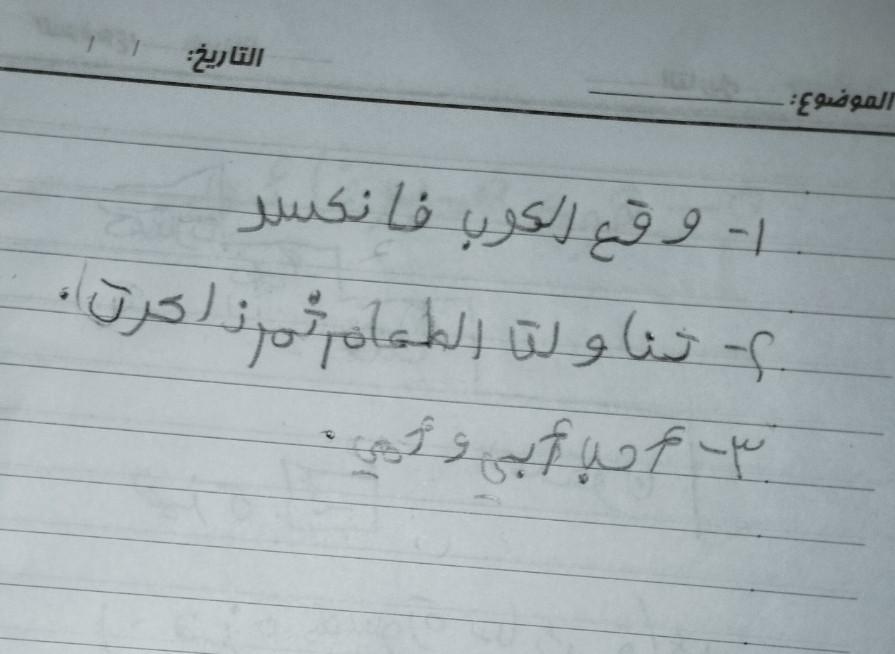 التاريخ: / /
الموضوع:
١- وقع الكوب فانكسر
٢- تناولتا الطعام ثم ذاكرتا.
٣- أحب أبي وأمي.